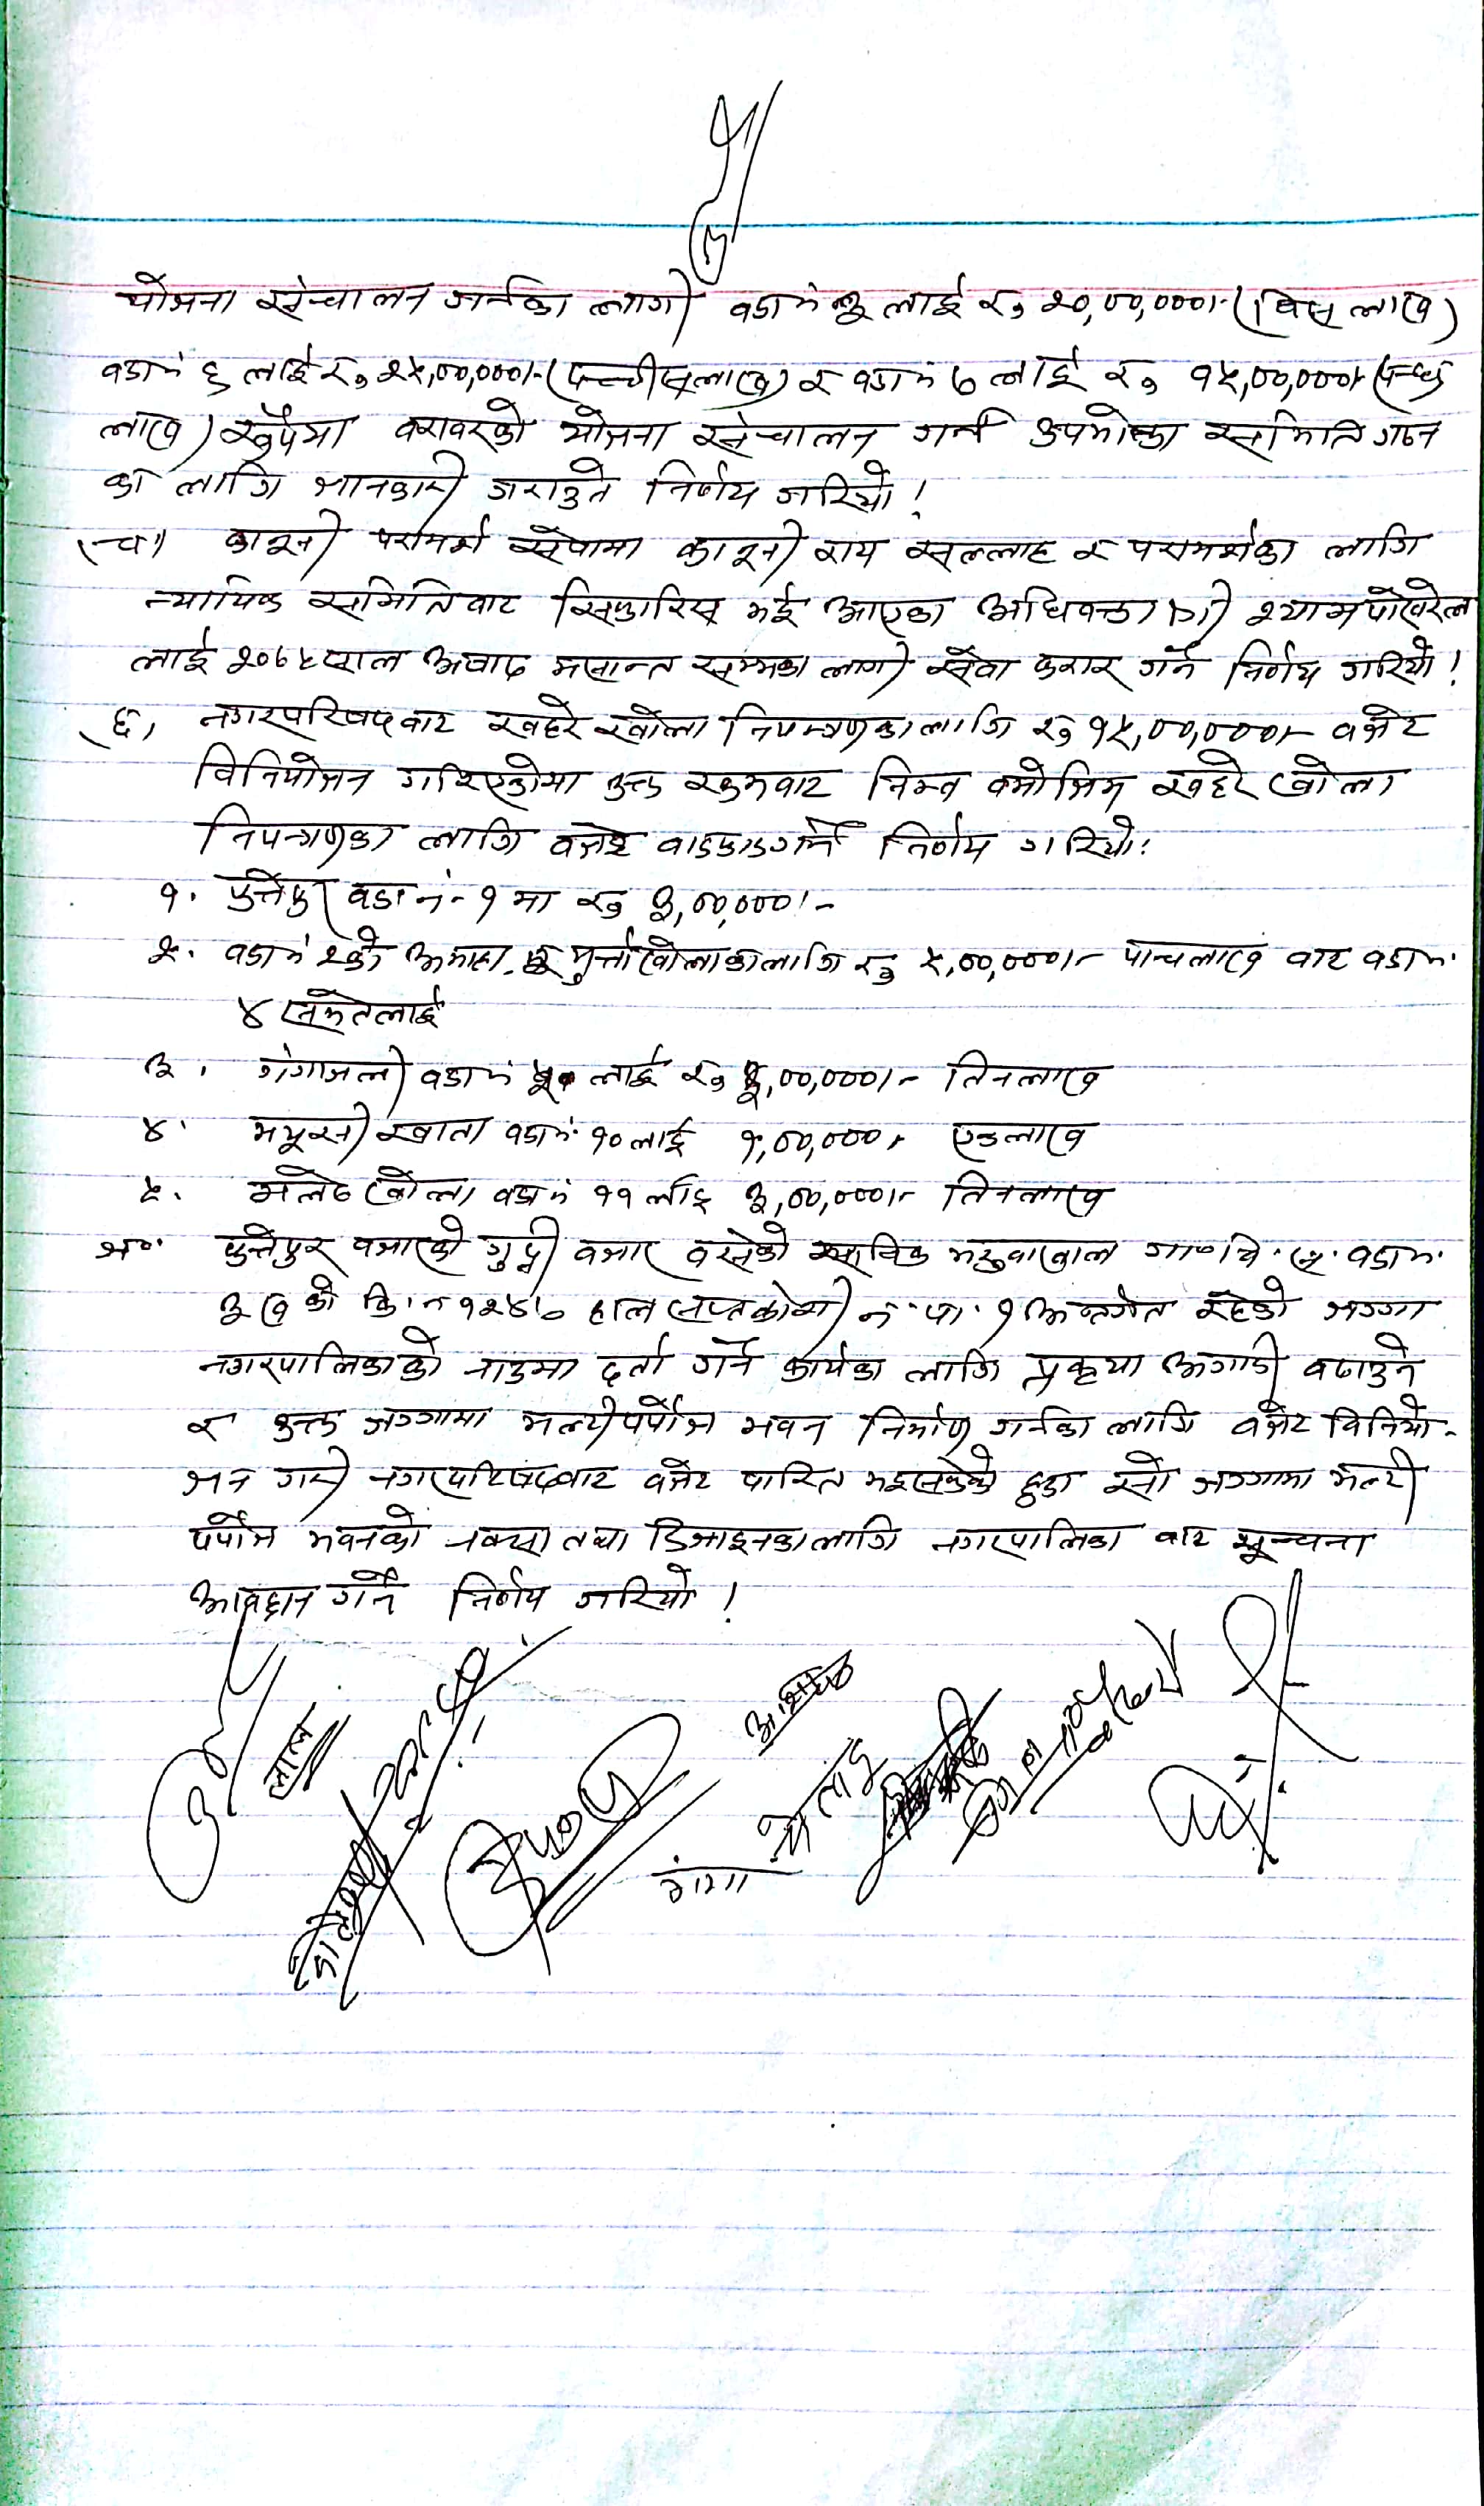 योजना संन्चालन गर्नका लागी वडा नं ३ लाई रु २०,००,०००।- (विस लाख)
वडा नं ६ लाई रु २५,००,०००।- (पच्चीस लाख) र वडा नं ७ लाई रु १५,००,०००।- (पन्ध्र
लाख) रुपैमा बराबरको योजना संन्चालन गर्न उपभोक्ता समिति गठन
का लागि जानकारी गराउने निर्णय गरियो।
(च) कानूनी परामर्श सेवामा कानूनी राय सल्लाह र परामर्शका लागि
न्यायिक समितिवाट सिफारिस भई आएका अधिवक्ता श्री श्याम पोखरेल
लाई २०७५ साल अषाढ मसान्त सम्मका लागी सेवा करार गर्ने निर्णय गरियो।
(छ) नगरपरिषदवाट खहरे खोला नियन्त्रणका लागि रु १५,००,०००।- वजेट
विनियोजन गरिएकोमा उक्त रकमवाट निम्न वमोजिम खहरे खोला
नियन्त्रणका लागि वजेट वाडफाड गर्ने निर्णय गरियो।
१. फत्तेपुर वडा नं- १ मा रु ३,००,०००।-
२. वडा नं २ को खोलाका लागि रु ५,००,०००।- पाचलाख वाट वडा नं.
४ समेतलाई
३. गंगाजली वडा नं लाई रु ३,००,०००।- तिनलाख
४. खाता वडा नं. १० लाई १,००,०००।- एकलाख
५. खोला वडा नं ११ लाई ३,००,०००।- तिनलाख
ज. फत्तेपुर वजारको गुद्री वजार वसेको साविक गा वि. स. वडा नं.
३ ख को कि. न १२४७ हाल सप्तकोशी न. पा. १ अन्तर्गत रहेको जग्गा
नगरपालिकाको नाउमा दर्ता गर्ने कार्यका लागि प्रकृया अगाडी वढाउने
र उक्त जग्गामा मल्टीपर्पोज भवन निर्माण गर्नका लागि वजेट विनियो-
जन गरी नगरपरिषदवाट वजेट पारित भइसकेको हुदा सो जग्गामा मल्टी
पर्पोज भवनको नक्सा तथा डिजाइनका लागि नगरपालिका वाट सून्चना
आवह्वान गर्ने निर्णय गरियो।
गंगा